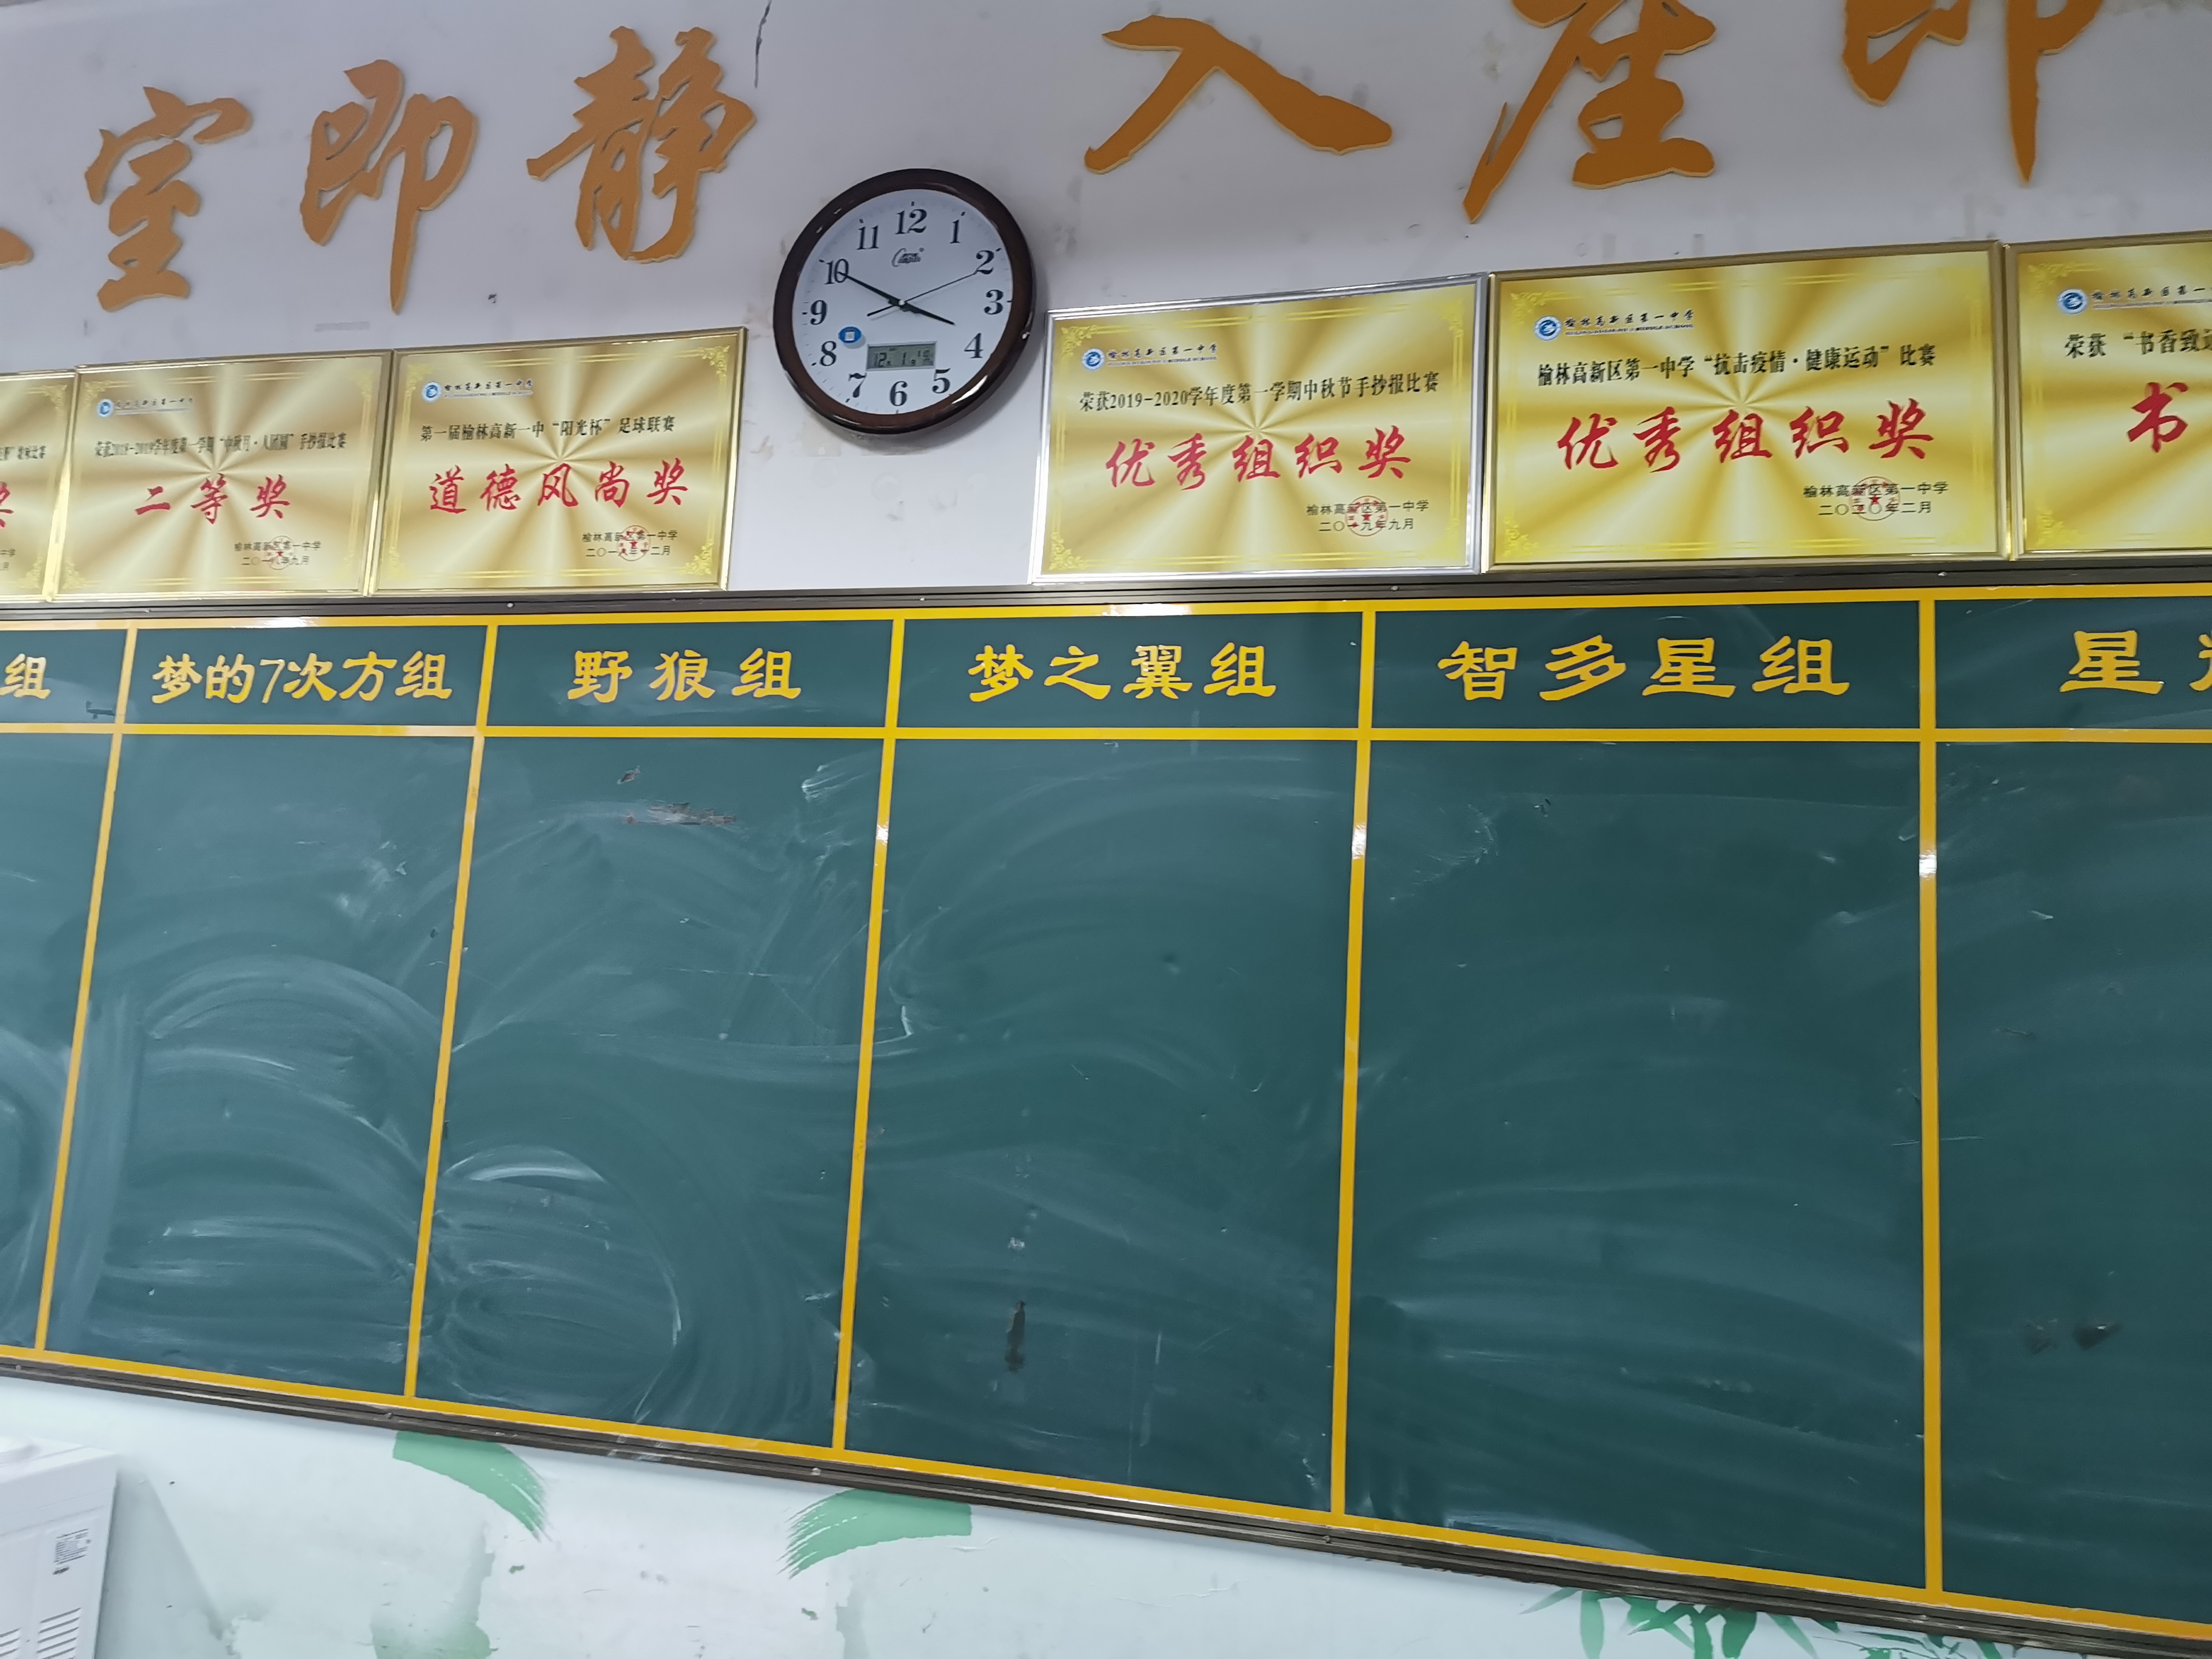 室即静 入座即
12
11
1
10
2
9
3
8
4
7
5
6
榆林高新区第一中学
荣获2018-2019学年度第一学期“中秋月·人团圆”手抄报比赛
二等奖
榆林高新区第一中学
二〇一八年九月
榆林高新区第一中学
第一届榆林高新一中“阳光杯”足球联赛
道德风尚奖
榆林高新区第一中学
二〇一八年十二月
榆林高新区第一中学
荣获2019-2020学年度第一学期中秋节手抄报比赛
优秀组织奖
榆林高新区第一中学
二〇一九年九月
榆林高新区第一中学
榆林高新区第一中学“抗击疫情·健康运动”比赛
优秀组织奖
榆林高新区第一中学
二〇二〇年二月
榆林高新区第一
荣获 “书香致
书
组
梦的7次方组
野狼组
梦之翼组
智多星组
星